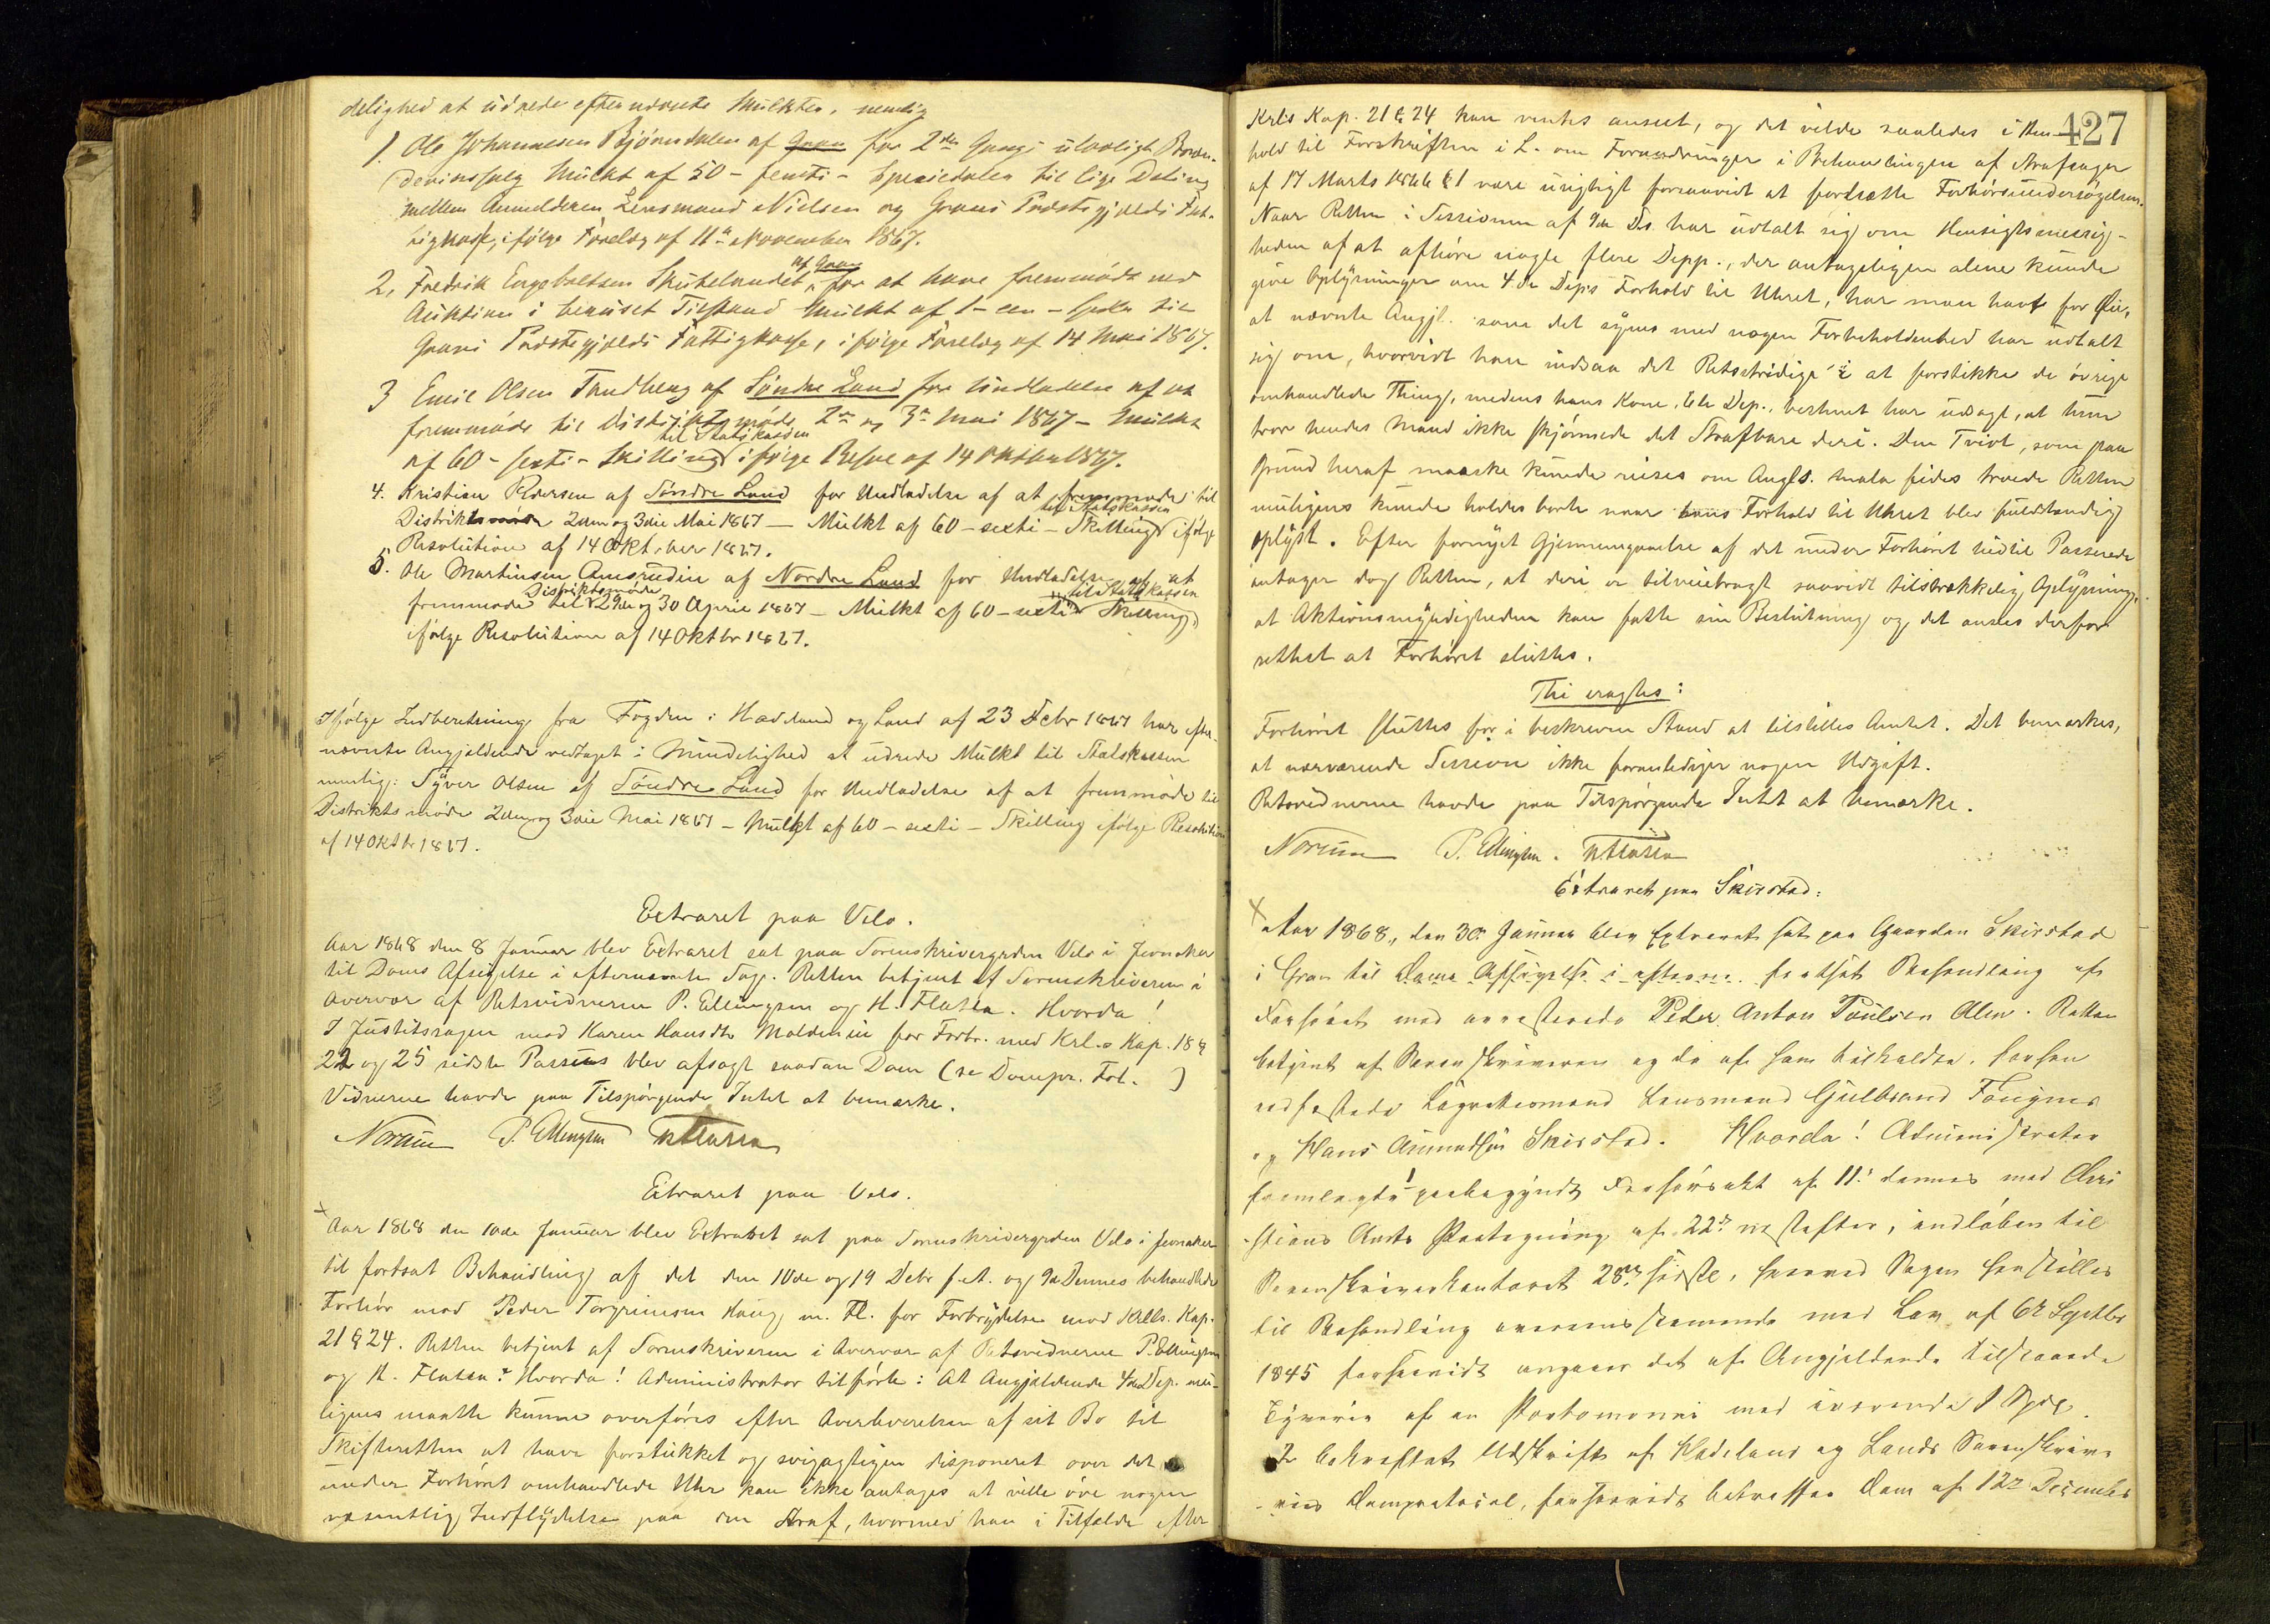 delighed at udrede efternævnte Mulkter, nemlig
1. Ole Johannesen Bjørnsdalen af Gran for 2den Gangs ulovligt Bræn-
devinssalg Mulkt af 50 - femti - Speciedaler til lige Deling
mellem Anmelderen Lensmand Nielsen og Grans Præstegjælds Fat-
tigkasse, ifølge Forelæg af 11te November 1867.
2, Fredrik Engebretsen Skutelandet af Gran for at have fremmødt ved
Auktion i beruset Tilstand Mulkt af 1 - een - Spdlr til
Grans Præstegjælds Fattigkasse, ifølge Forelæg af 14 Mai 1867.
3 Emil Olsen Sandberg af Søndre Land for Undladelse af at
fremmøde til Distriktsmøde 2den og 3die Mai 1867 - Mulkt
til Statskassen
af 60 - sexti - Skilling ifølge Resol af 14 Oktober 1867.
4. Kristian Pedersen af Søndre Land for Undladelse af at fremmøde til
til Statskassen
Distriktsmøde 2den og 3die Mai 1867 — Mulkt af 60 - sexti - Skilling ifølge
Resolution af 14 Oktober 1867.
5. Ole Martinsen Amsrudin af Nordre Land for Undladelse af at
Distriktsmøde til Statskassen
fremmøde til 29de og 30 April 1867 - Mulkt af 60 - sexti - Skilling
ifølge Resolution af 14 Oktbr 1867.
Ifølge Indberetning fra Fogden i Hadeland og Land af 23 Debr 1867 har efter-
nævnte Angjældende vedtaget i Mindelighed at udrede Mulkt til Statskassen
nemlig: Syver Olsen af Søndre Land for Undladelse af at fremmøde til
Distriktsmøde 2den og 3die Mai 1867 - Mulkt af 60 - sexti - Skilling ifølge Resolution
af 14 Oktbr 1867.
Extraret paa Velo.
Aar 1868 den 8 Januar blev Extraret sat paa Sorenskrivergrden Velo i Jevnaker
til Doms Afsigelse i efternævnte Sag. Retten betjent af Sorenskriveren i
Overvær af Retsvidnerne P. Ellingsen og H. Flaten. Hvorda!
I Justitssagen mod Karen Hansdtr Moldenin for Forbr. med Krl.s Kap. 18 §
22 og 25 sidste Passus blev afsagt saadan Dom (se Dompr. Fol. )
Vidnerne havde paa Tilspørgende Intet at bemærke.
Norum P. Ellingsen H Flaten
Extraret paa Velo.
Aar 1868 den 10de Januar blev Extraret sat paa Sorenskrivergrden Velo i Jevnaker
til fortsat Behandling af det den 10de og 19 Debr f.A. og 9de Dennes behandlede
Forhør mod Peder Torgrimsen Haug m. Fl. for Forbrydelse mod Krlls. Kap.
21 § 24. Retten betjent af Sorenskriveren i Overvær af Retsvidnerne P. Ellingsen
og H. Flaten. Hvorda! Administrator tilførte: At Angjældende 4de Dep. mu-
ligens maatte kunne overføres efter Overleverelsen af sit Bo til
Skifteretten at have forstukket og svigagtigen disponeret over det
under Forhøret omhandlede Uhr kan ikke antages at ville øve nogen
væsentlig Indflydelse paa den Straf, hvormed han i Tilfælde efter
427
Krls Kap. 21 § 24 kan ventes anseet, og det vilde saaledes i Hen-
hold til Forskriften i L. om Forandringer i Behandlingen af Strafsager
af 17 Marts 1866 § 1 være urigtigt forsaavidt at fortsætte Forhørsundersøgelsen.
Naar Retten i Sessionen af 9de Ds. har udtalt sig om Hensigtsmæssig-
heden af at afhøre nogle flere Depp., der antageligen alene kunde
give Oplysninger om 4de Deps Forhold til Uhret, har man havt for Øie,
at nævnte Angjl. som det synes med nogen Forbeholdenhed har udtalt
sig om, hvorvidt han indsaa det Retsstridige i at forstikke de øvrige
omhandlede Thing, medens hans Kone, 6te Dep., bestemt har udsagt, at hun
tror hendes Mand ikke skjønnede det Strafbare deri. Den Tvivl, som paa
Grund heraf maaske kunde reises om Angls. mala fides troede Retten
muligens kunde holdes borte naar hans Forhold til Uhret blev fuldstændig
oplyst. Efter fornyet Gjennemgaaelse af det under Forhøret hidtil Passerede
antager dog Retten, at deri er tilveiebragt saavidt tilstrækkelig Oplysning,
at Aktionsmyndigheden kan fatte sin Beslutning og det ansees derfor
rettest at Forhøret sluttes.
Thi eragtes:
Forhøret sluttes for i beskreven Stand at tilstilles Amtet. Det bemærkes,
at nærværende Session ikke foranlediger nogen Udgift.
Retsvidnerne havde paa Tilspørgende Intet at bemærke.
Norum P. Ellingsen. H Flaten
Extraret paa Skirstad:
Aar 1868, den 30te Januar blev Extraret sat paa Gaarden Skirstad
i Gran til Doms Afsigelse i efternev. fortsat Behandling af
Forhøret mod arresterede Peder Anton Poulsen Alm. Retten
betjent af Sorenskriveren og de af ham tilkaldte, forhen
edfæstede Lagrettesmænd Lensmand Gulbrand Fougner
og Hans Amundsen Skirstad. Hvorda! Administrator
fremlagde 1 paabegyndt Forhørsakt af 11te dennes med Chri-
stians Amts Paategning af 22de næstefter, indløben til
Sorenskriverkontoret 28de sidste, hvorved Sagen henstilles
til Behandling overensstemmende med Lov af 6te Septbr
1845 forsaavidt angaaer det af Angjældende tilstaaede
Tyverie af en Portomonni med iværende 1 Spdl.
2 bekræftet Udskrift af Hadeland og Lands Sorenskrive-
ries Domprotocol, forsaavidt betræffer Dom af 12te December